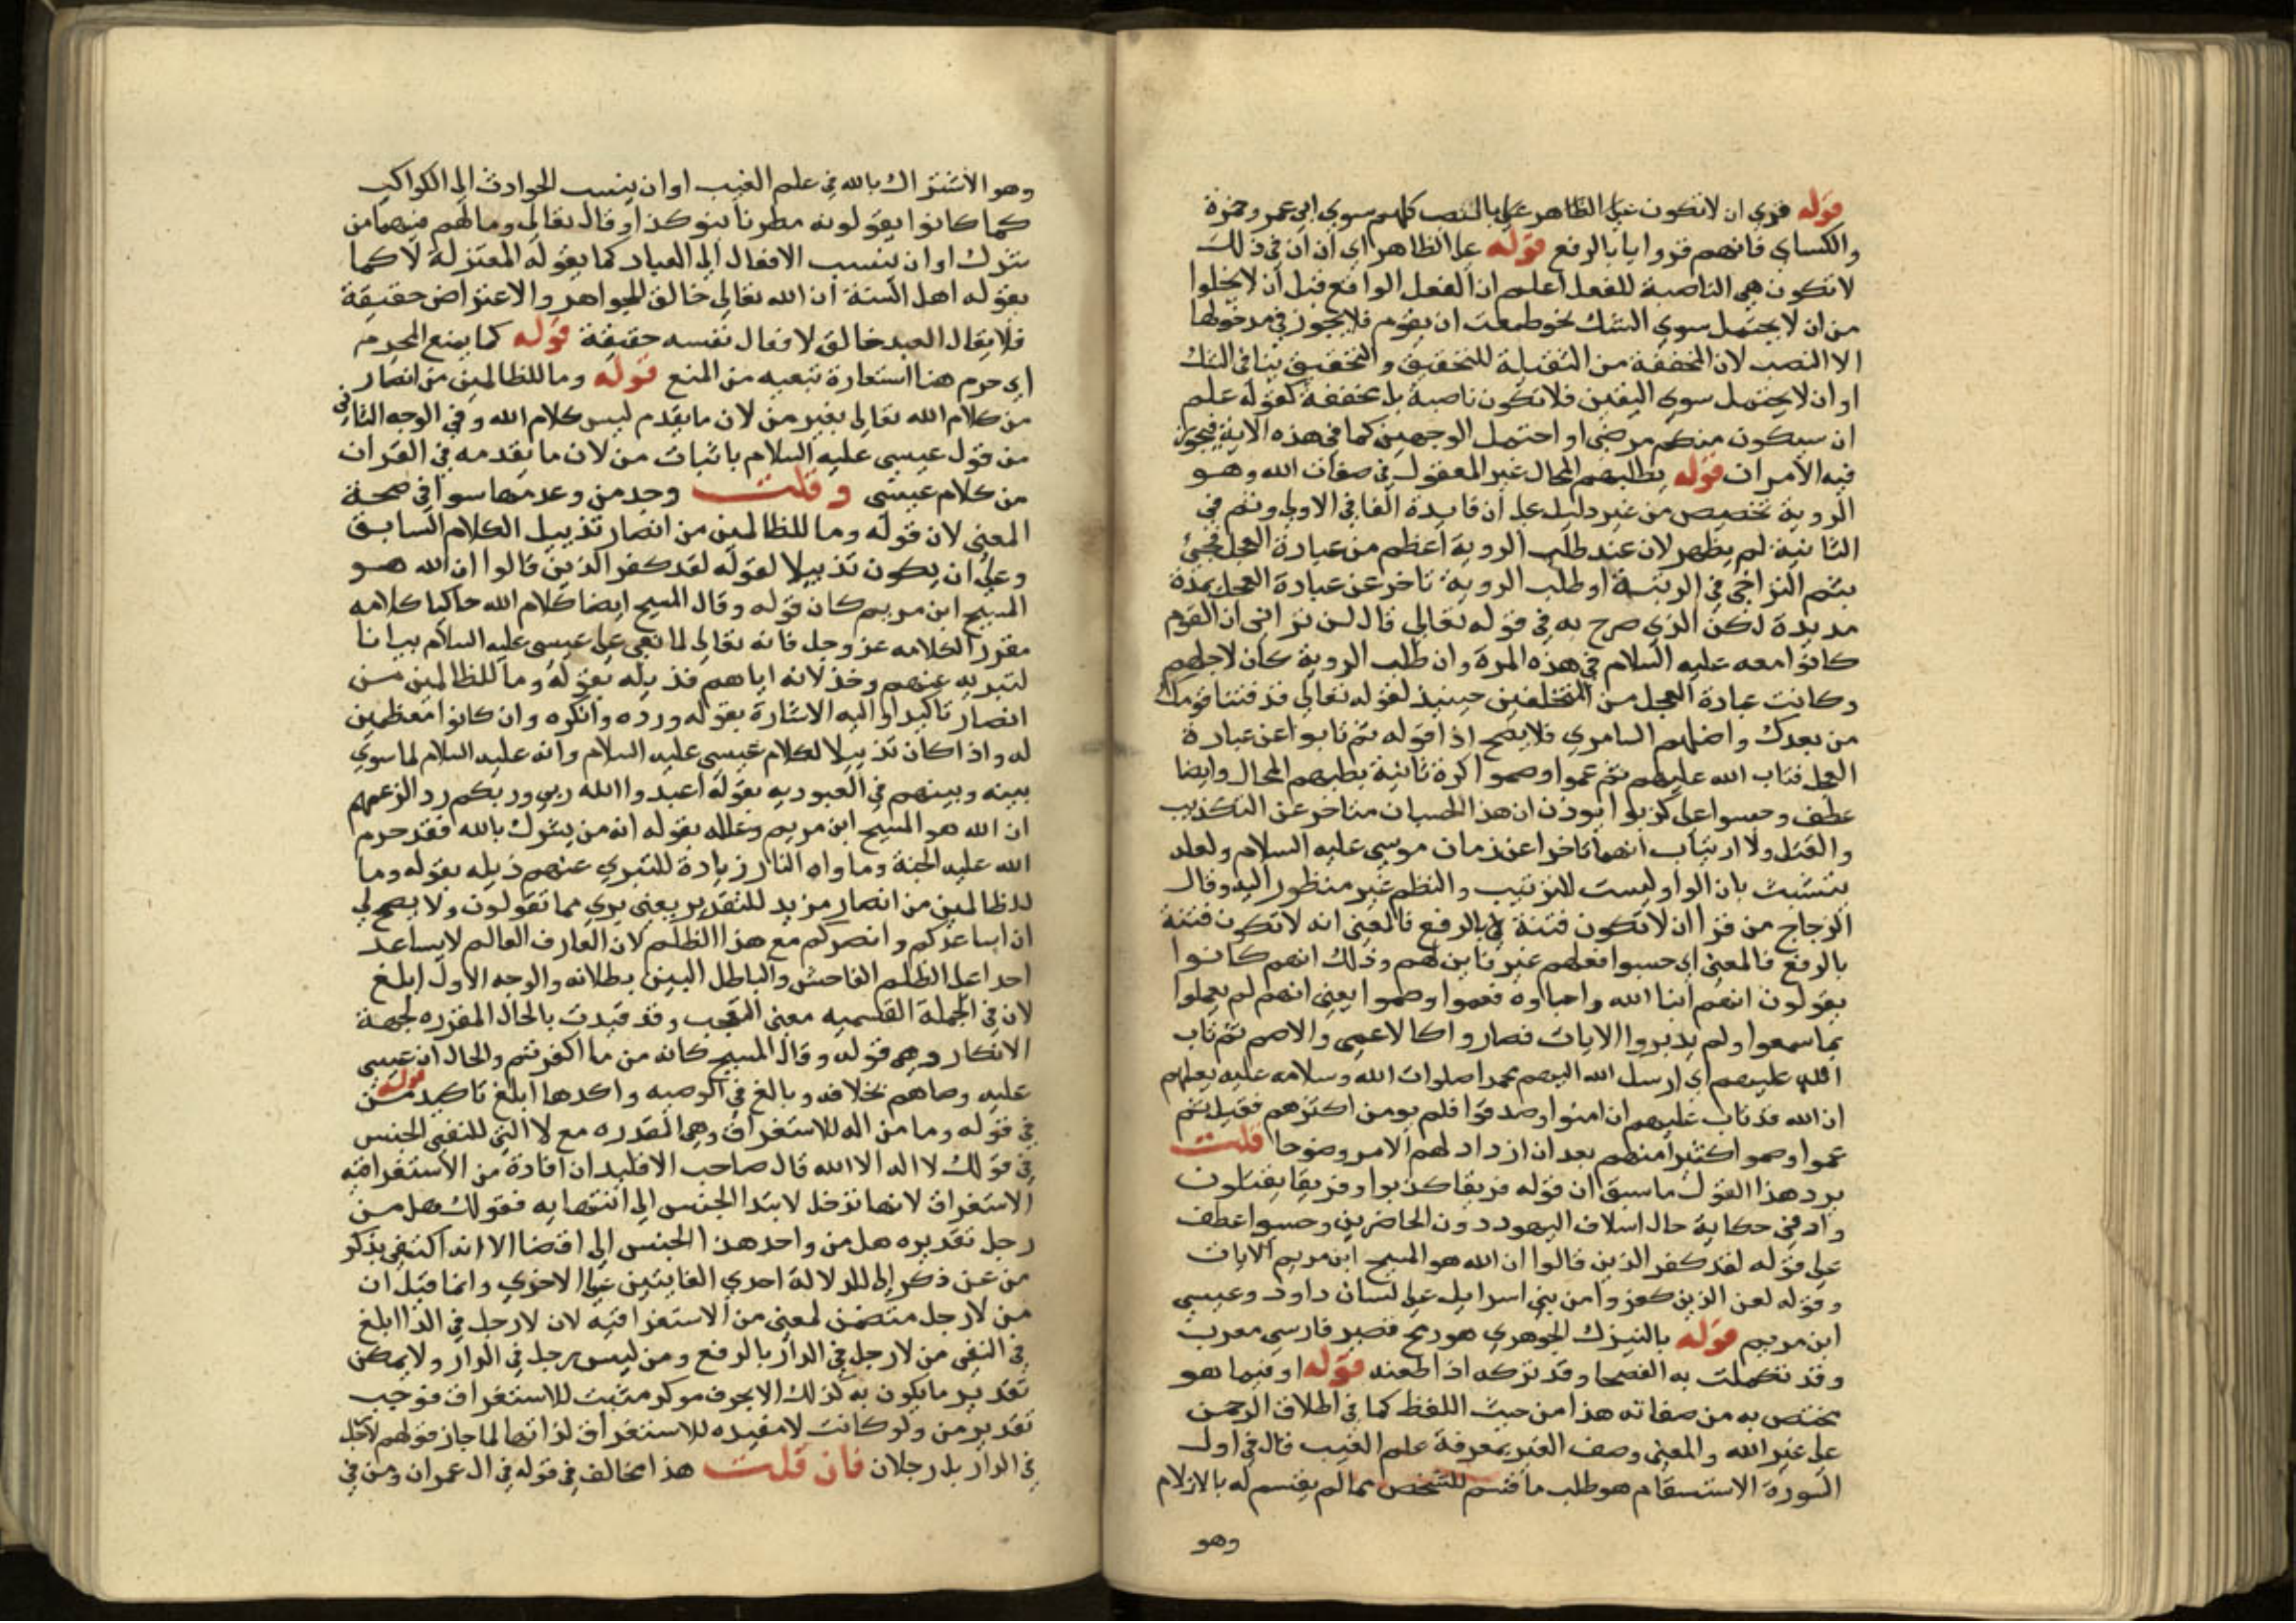 قوله قري ان لا تكون على الظاهر على بالنصب كلهم سوي ابي عمرو وحمزة
والكساي فانهم قروا يا بالرفع قوله على الظاهر اي ان ان في ذلك
لا تكون هي الناصبة للفعل اعلم ان الفعل الواقع قبل ان لا يخلوا
من ان لا يحتمل سوي الشك نحو طمعت ان يقوم فلا يجوز في مدخولها
الا النصب لان المخففة من الثقيلة للتحقيق والتحقيق ينافي الشك
او ان لا يحتمل سوي اليقين فلا تكون ناصبة بل مخففة كقوله علم
ان سيكون منكم مرضي او احتمل الوجهين كما في هذه الاية فيجوز
فيه الامران قوله بطلبهم المحال غير المعقول في صفات الله وهو
الروية تخصيص من غير دليل على ان فايدة الفا في الاولي وثم في
الثانية لم يظهر لان عند طلب الروية اعظم من عبادة العجل فجئ
بثم التراخي في الرتبة او طلب الروية تاخر عن عبادة العجل بمدة
مديدة لكن الذي صرح به في قوله تعالي قال لن تراني ان القوم
كانوا معه عليه السلام في هذه المرة وان طلب الروية كان لاجلهم
وكانت عبادة العجل من المتخلفين حينيذ لقوله تعالي قد فتنا قومك
من بعدك واضلهم السامري فلا يصح اذا قوله ثم تابوا عن عبادة
العجل فتاب الله عليهم ثم عموا وصموا كرة ثانية بطلبهم المحال وايضا
عطف وحسبوا على كذبوا يوذن ان هذا الحسبان متاخر عن التكذيب
والقتل ولا ارتياب انهما تاخرا عن زمان موسي عليه السلام ولعله
يتشبث بان الواو ليست للترتيب والنظم غير منظور اليه وقال
الزجاج من قرا ان لا تكون فتنة بالرفع فالمعني انه لا تكون فتنة
بالرفع فالمعني اي حسبوا فعلهم غير فاين لهم وذلك انهم كانوا
يقولون انهم ابنا الله واحباوه فعموا وصموا يعني انهم لم يعملوا
بما سمعوا ولم يدبروا الايات فصاروا كالاعمي والاصم ثم تاب
الله عليهم اي ارسل الله اليهم محمدا صلوات الله وسلامه عليه يعلمهم
ان الله قد تاب عليهم ان امنوا وصدقوا فلم يومن اكثرهم فقيل ثم
عموا وصموا كثير منهم بعد ان ازداد لهم الامر وضوحا قلت
يرد هذا القول ما سبق ان قوله فريقا كذبوا وفريقا يقتلون
وارد في حكاية حال اسلاف اليهود دون الحاضرين وحسبوا عطف
على قوله لقد كفر الذين قالوا ان الله هو المسيح ابن مريم الايات
وقوله لعن الذين كفروا من بني اسرايل على لسان داود وعيسي
ابن مريم قوله بالنيزك الجوهري هو رمح قصير فارسي معرب
وقد تكلمت به الفصحا وقد نزكه اذا طعنه قوله او فيما هو
يختص به من صفاته هذا من حيث اللفظ كما في اطلاق الرحمن
على غير الله والمعني وصف الغير بمعرفة علم الغيب قال في اول
السورة الاستسقام هو طلب ما قسم للشخص مما لم يقسم له بالازلام
وهو
وهو الاشتراك بالله في علم الغيب او ان ينسب الحوادث الى الكواكب
كما كانوا يقولونه مطرنا بنو كذا وقال تعالي وما لهم فيهما من
شرك او ان ينسب الافعال الى العباد كما يقوله المعتزلة لا كما
يقوله اهل السنة ان الله تعالي خالق الجواهر والاعتراض حقيقة
فلا يقال العبد خالق لافعال نفسه حقيقة قوله كما يمنع المحرم
اي حرم هنا استعارة تبعيه من المنع قوله وما للظالمين من انصار
من كلام الله تعالي بغير من لان ما يقدم ليس كلام الله وفي الوجه الثاني
من قول عيسي عليه السلام باثبات من لان ما يقدمه في القران
من كلام عيسي وقلت وجد من وعدمها سوا في صحة
المعني لان قوله وما للظالمين من انصار تذييل الكلام السابق
وعلى ان يكون تذييلا لقوله لقد كفر الذين قالوا ان الله هو
المسيح ابن مريم كان قوله وقال المسيح ايضا كلام الله حاكيا كلامه
مقررا لكلامه عز وجل فانه تعالي لما نعي على عيسي عليه السلام بيانا
لتبريه عنهم وخذلانه اياهم فذيله بقوله وما للظالمين من
انصار تاكيدا واليه الاشارة بقوله ورده وانكره وان كانوا معظمين
له واذا كان تذييلا لكلام عيسي عليه السلام وانه عليه السلام لما سوي
بينه وبينهم في العبوديه بقوله اعبدوا الله ربي وربكم رد الزعمهم
ان الله هو المسيح ابن مريم وعلله بقوله انه من يشرك بالله فقد حرم
الله عليه الجنة وماواه النار زيادة للتبري عنهم ذيله بقوله وما
للظالمين من انصار مزيد للتقرير يعني بري مما تقولون ولا يصح لي
ان اساعدكم وانصركم مع هذا الظلم لان العارف العالم لا يساعد
احدا على الظلم الفاحش والباطل البين بطلانه والوجه الاول ابلغ
لان في الجملة القسميه معني التعجب وقد قيدت بالحال المقرره لجهة
الانكار وهي قوله وقال المسيح كانه من ما اكفرتم والحال ان عيسي
عليه وصاهم بخلافه وبالغ في الوصيه واكدها ابلغ تاكيد قوله من
في قوله وما من اله للاستغراق وهي المقدره مع لا التي للنفي الجنس
في قولك لا اله الا الله قال صاحب الاقليد ان افادة من الاستغراقيه
الاستغراق لانها تدخل لابتدا الجنس الى انتهايه فقولك هل من
رجل تقديره هل من واحد هذا الجنس الى اقضا الا انه اكتفي بذكر
من عن ذكر الى للدلالة احدي الغايتين على الاخري وانما قيل ان
من لا رجل متضمن لمعني من الاستغراقيه لان لا رجل في الدار ابلغ
في النفي من لا رجل في الدار بالرفع ومن ليس رجل في الدار ولا يمكن
تقدير ما يكون به كذلك الا بحرف موكد مثبت للاستغراق فوجب
تقدير من ولو كانت لا مفيده للاستغراق لذاتها لما جاز قولهم لا رجل
في الدار بل رجلان فان قلت هذا مخالف في قوله في ال عمران ومن في